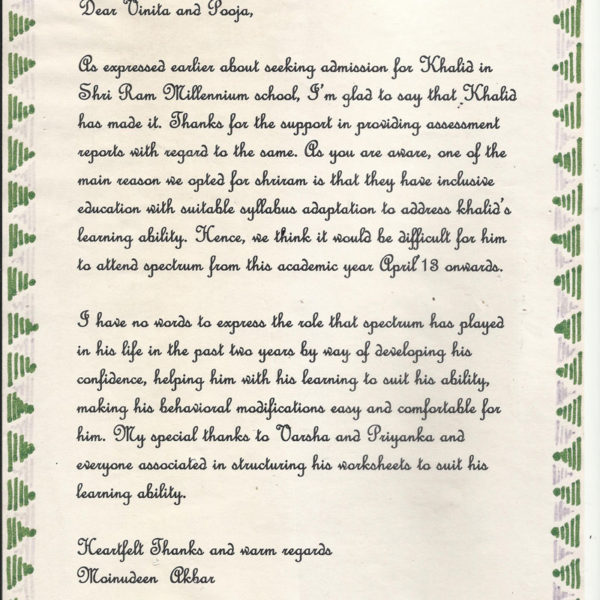 Dear Vinita and Pooja,
As expressed earlier about seeking admission for Khalid in
Shri Ram Millennium school, I'm glad to say that Khalid
has made it. Thanks for the support in providing assessment
reports with regard to the same. As you are aware, one of the
main reason we opted for shriram is that they have inclusive
education with suitable syllabus adaptation to address khalid's
learning ability. Hence, we think it would be difficult for him
to attend spectrum from this academic year April'13 onwards.
I have no words to express the role that spectrum has played
in his life in the past two years by way of developing his
confidence, helping him with his learning to suit his ability,
making his behavioral modifications easy and comfortable for
him. My special thanks to Varsha and Priyanka and
everyone associated in structuring his worksheets to suit his
learning ability.
Heartfelt Thanks and warm regards
Moinudeen Akbar